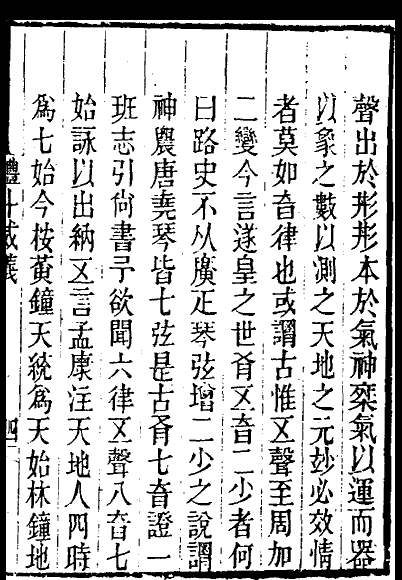 聲出於形形本於氣神藥氣以運而器
以象之數以測之天地之元妙必效情
者莫如音律也或謂古惟五聲至周加
二變今言遂皇之世有五音二少者何
曰路史不从廣疋琴弦增二少之說謂
神農唐堯琴皆七弦是古有七音證一
班志引尙書予欲聞六律五聲八音七
始詠以出納五言孟康注天地人四時
爲七始今桉黃鐘天統爲天始林鐘地